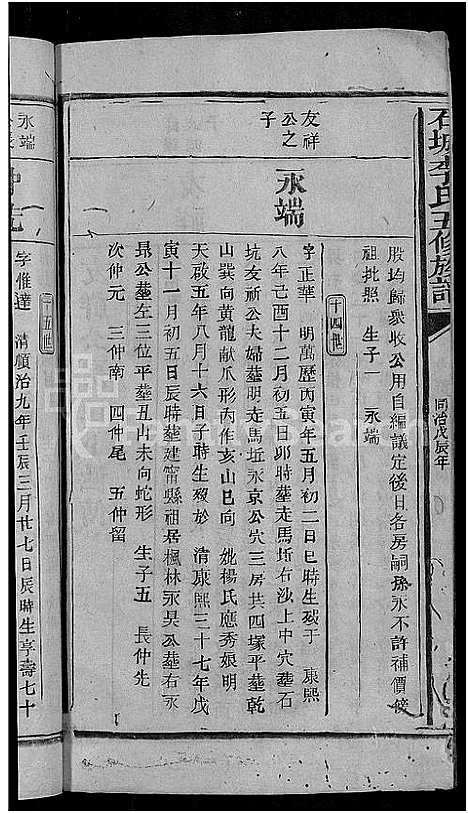 石城李氏五修族譜
同治戊辰年
股均歸衆收公用自編議定後日各房嗣孫永不許補價候
祖批照 生子一 永端
十四世
友祥公之子
永端
字正華 明萬歷丙寅年五月初二日巳時生殁于 康熙
八年己酉十二月初五日卯時葬走馬坵右沙上中穴葬石
坑友祈公夫婦墓明走馬坵永京公穴三房共四塚平葬乾
山巽向黃龍獻爪形丙作亥山巳向 妣楊氏應秀娘明
天啟五年八月十六日子時生殁於 清康熙三十七年戊
寅十一月初五日辰時葬建甯縣祖居楓林永昊公墓右永
昂公墓左三位平葬丑山未向蛇形 生子五 長仲先
次仲元 三仲南 四仲尾 五仲留
十五世
永端
字惟達 清順治九年壬辰三月廿七日辰時生享壽七十